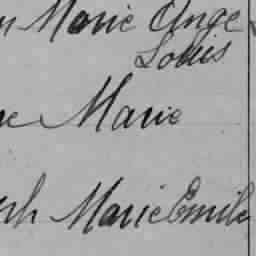 n Marie Ange
Louis
ne Marie
eph Marie Emile